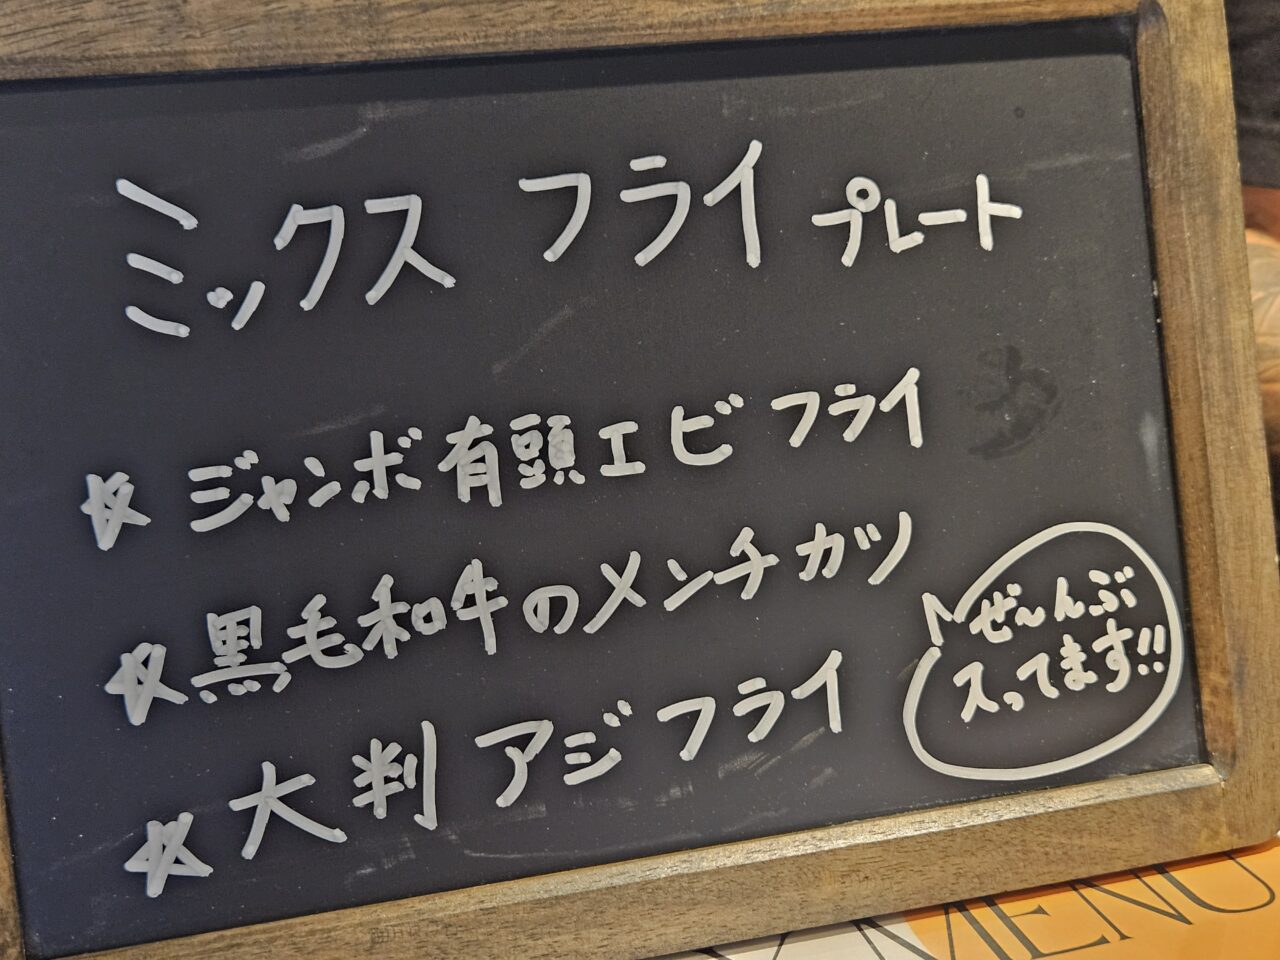 ミックス フライ プレート
☆ ジャンボ有頭エビフライ
☆ 黒毛和牛のメンチカツ
☆ 大判アジフライ
ぜ〜んぶ
入ってます!!
MENU